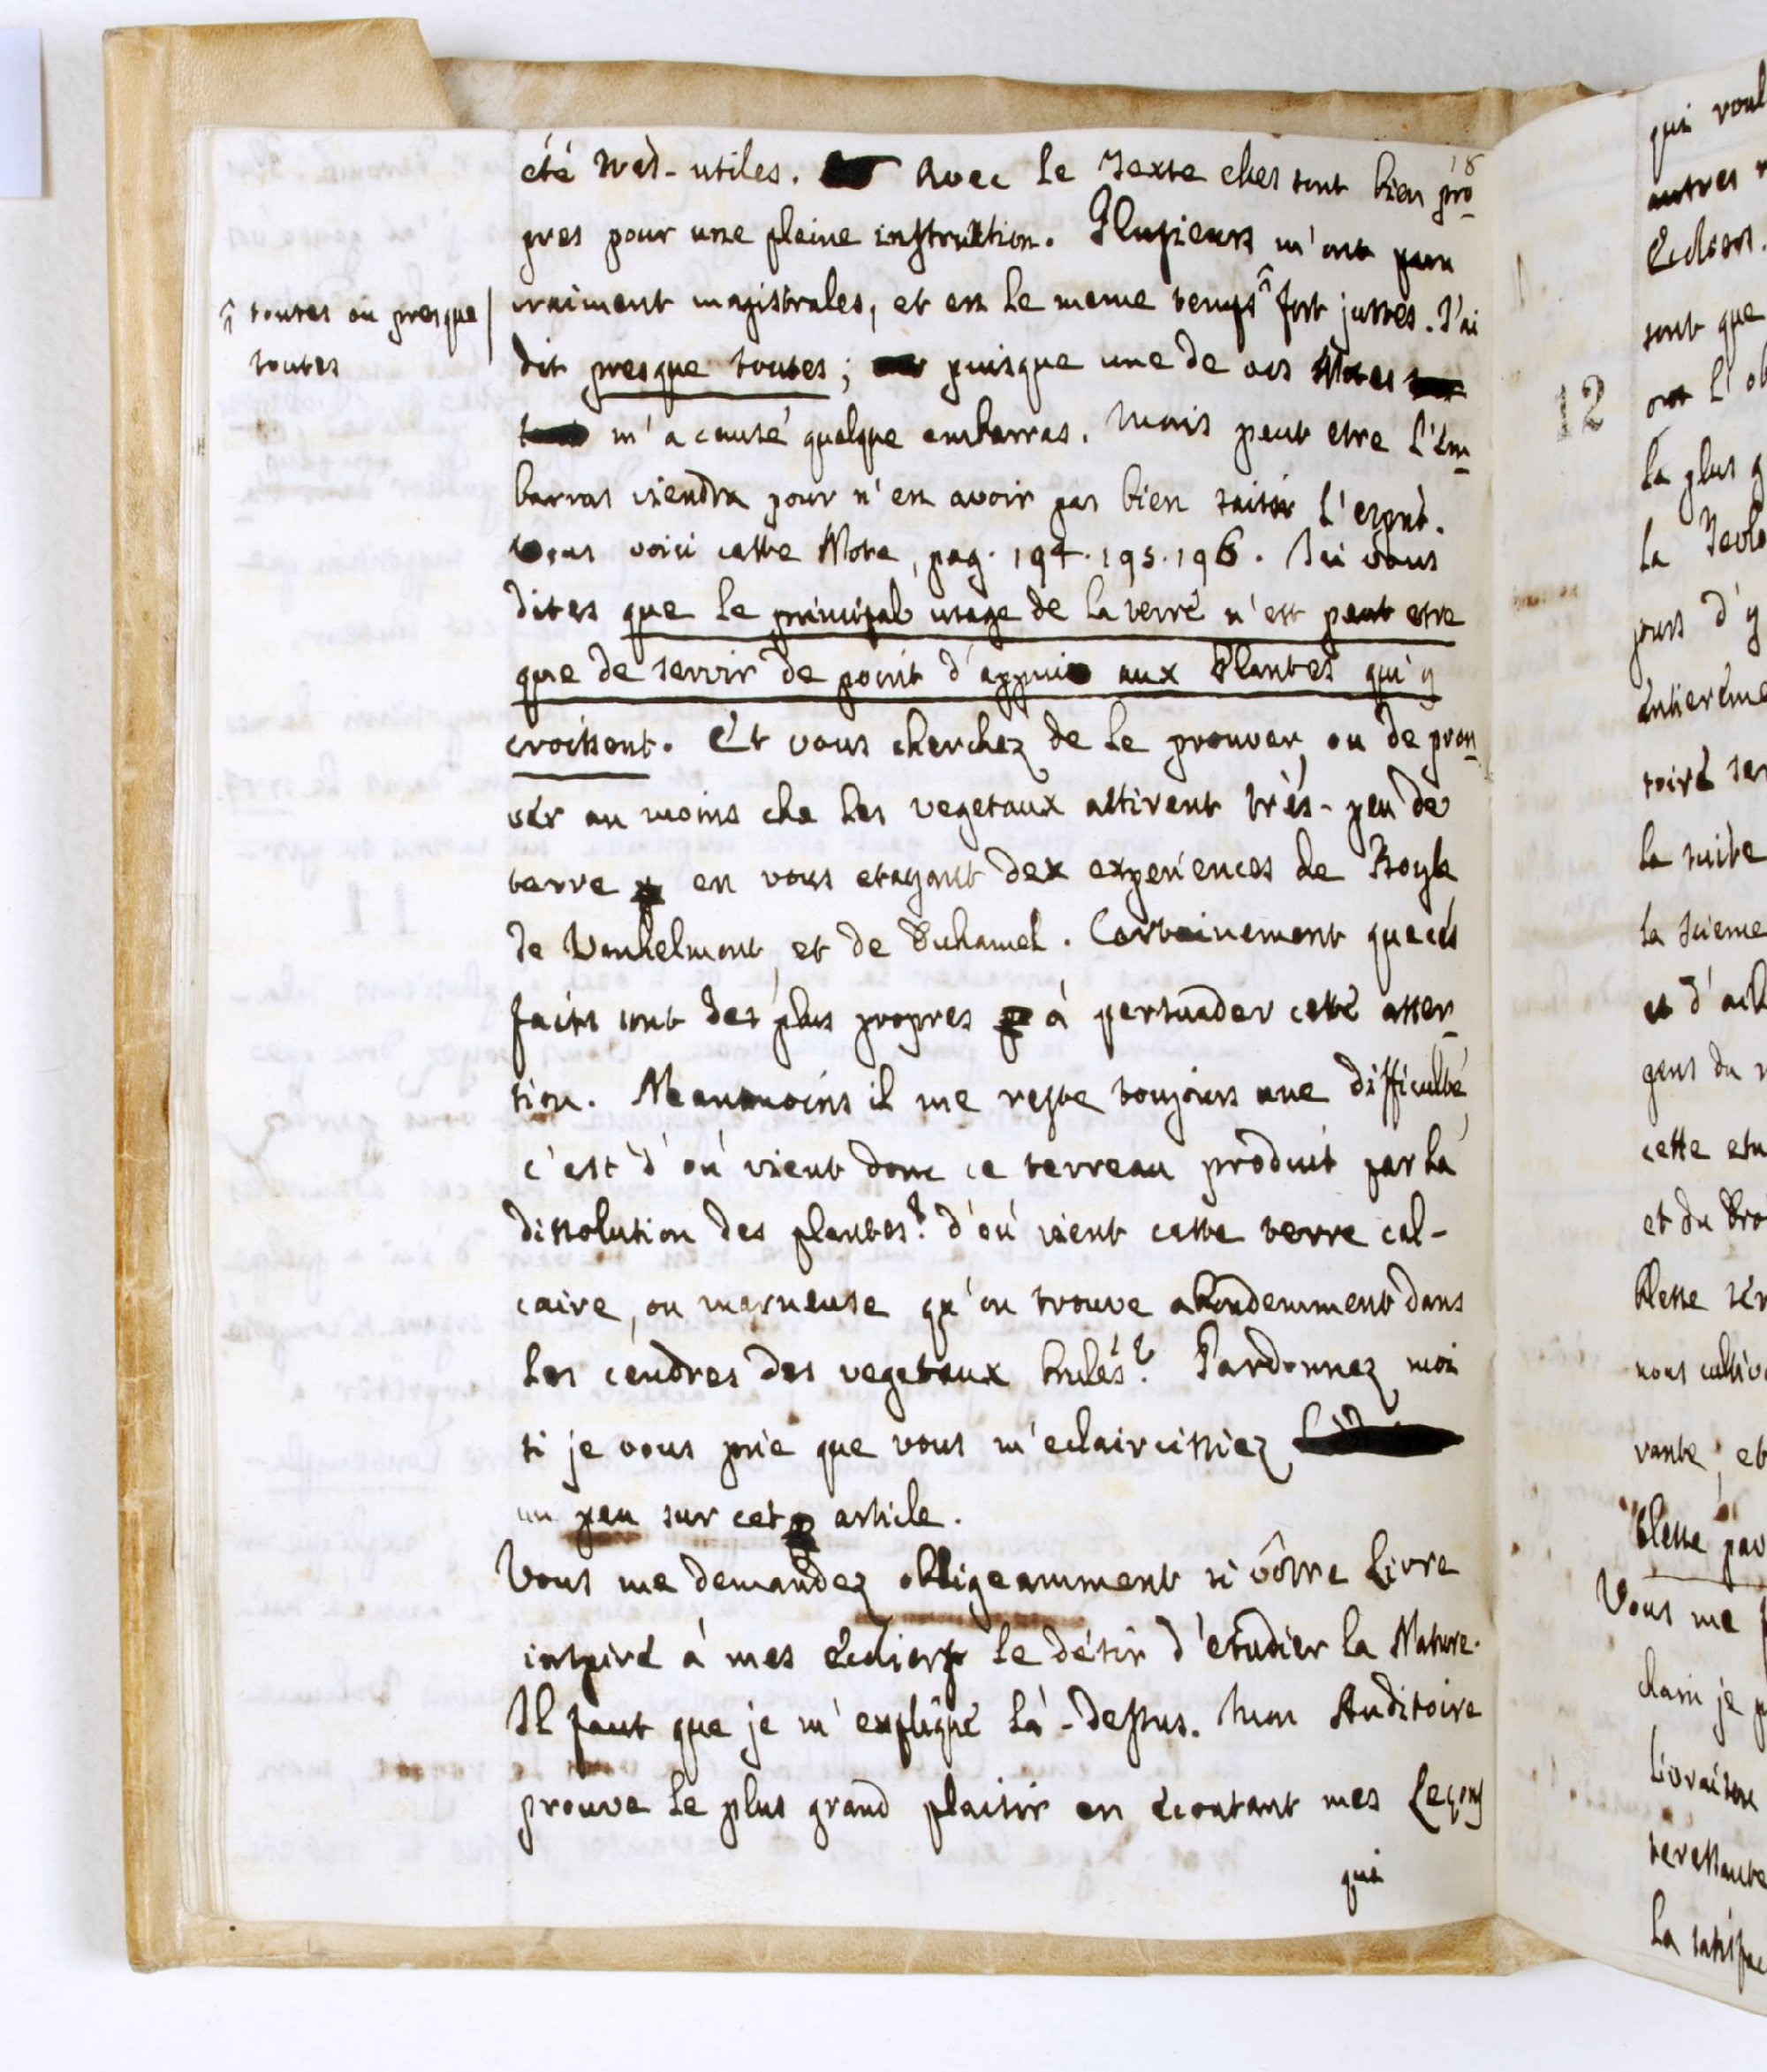 18
été très-utiles. Avec le Texte elles sont bien pro-
pres pour une pleine instruction. Plusieurs m'ont paru
vraiment magistrales, et en le meme temps ^ fort justes. J'ai
^ toutes ou presque
toutes
dit presque toutes; puisque une de vos Notes
m'a causé quelque embarras. Mais peut etre l'em-
barras viendra pour n'en avoir pas bien saisir l'esprit.
Vous voici cette Note, pag. 194. 195. 196. Ici vous
dites que le principal usage de la terre n'est peut etre
que de servir de point d'appui aux Plantes qui y
croissent. Et vous cherchez de le prouver, ou de prou-
ver au moins che les vegetaux attirent très-peu de
terre en vous etayant dex experiences de Boyle
de Vanhelmont, et de Duhamel. Certainement que ces
faits sont des plus propres à persuader cette asser-
tion. Neanmoins il me reste toujours une difficulté,
c'est d'où vient donc ce terreau produit par la
dissolution des plantes? d'où vient cette terre cal-
caire, ou marneuse qu'on trouve abondemment dans
les cendres des vegetaux brulés? Pardonnez moi
si je vous prie que vous m'eclaircissiez
un peu sur cet article.
Vous me demandez obligeamment si vôtre Livre
inspire à mes Ecoliers le désir d'etudier la Nature.
Il faut que je m'explique là-dessus. Mon Auditoire
prouve le plus grand plaisir en ecoutant mes Leçons
qui
12
qui
autres
Ecoliers.
sont que
ont l'ob
la plus
la
jours d'y
entiereme
toire
la suite
la Science
et d'ail
gens du
cette etu
et du
nous cultiv
vante, et
Vous me
je
Livraison
la satisfac